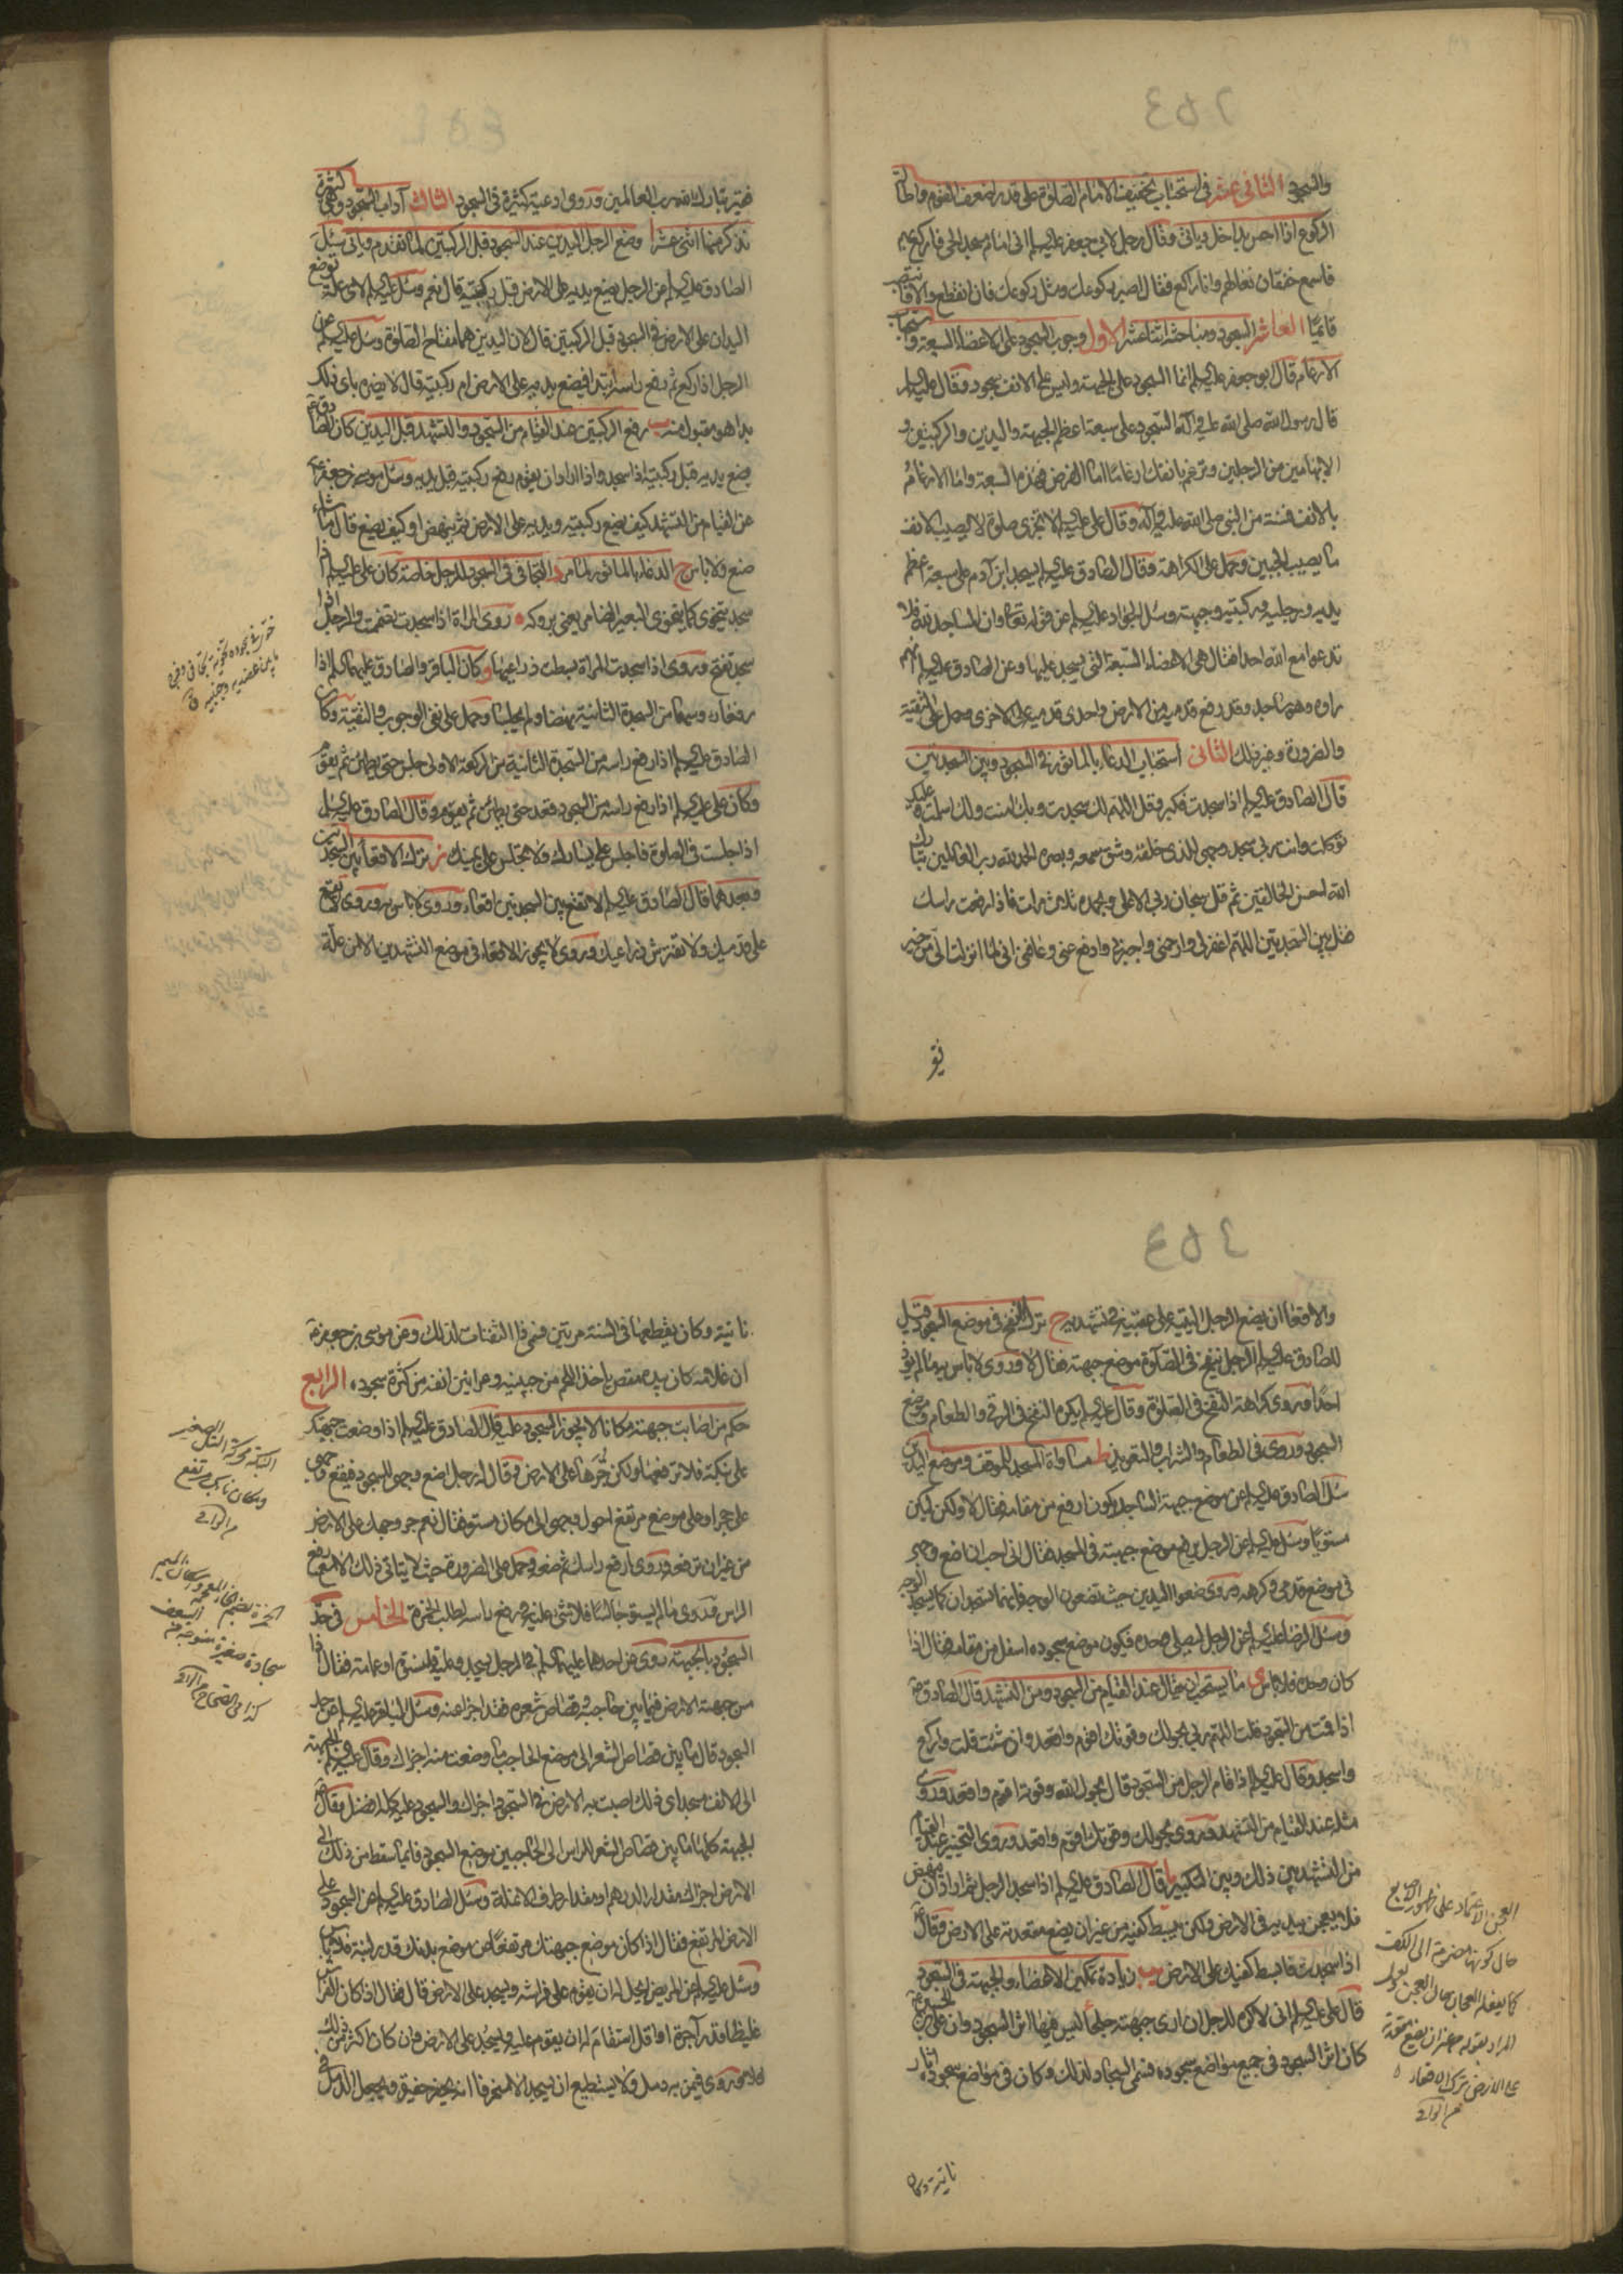 والسجود الثاني عشر في استحباب تخفيف الامام الصلوة على قدر اضعف القوم واطالة
الركوع اذا احس بداخل وياتي وقال رجل لابي جعفر عليه السلم اني امام مسجد الحي فاركع بهم
فاسمع خفقان نعالهم وانا راكع فقال اصبر ركوعك ومثل ركوعك فان انقطع والا فانتصب
قائما العاشر السجود ومباحثه اثنا عشر الاول وجوب السجود على الاعضاء السبعة واستحباب
الارغام قال ابو جعفر عليه السلم انما السجود على الجبهة وليس على الانف سجود وقال عليه السلم
قال رسول الله صلى الله عليه وآله السجود على سبعة اعظم الجبهة واليدين والركبتين و
الابهامين من الرجلين وترغم بانفك ارغاما اما الفرض فهذه السبعة واما الارغام
بالانف فسنة من النبي صلى الله عليه وآله وقال علي عليه السلم لا تجزي صلوة لا يصيب الانف
ما يصيب الجبين وحمل على الكراهة وقال الصادق عليه السلم يسجد ابن آدم على سبعة اعظم
يديه ورجليه وركبتيه وجبهته وسئل الجواد عليه السلم عن قوله تعالى وان المساجد لله فلا
تدعوا مع الله احدا فقال هي الاعضاء السبعة التي يسجد عليها وعن الصادق عليه السلم انهم
راوه وهو ساجد وقد رفع قدميه من الارض واحدى قدميه على الاخرى وحمل على التقية
والضرورة وغير ذلك الثاني استحباب الدعاء بالماثور في السجود وبين السجدتين
قال الصادق عليه السلم اذا سجدت فكبر وقل اللهم لك سجدت وبك امنت ولك اسلمت وعليك
توكلت وانت ربي سجد وجهي للذي خلقه وشق سمعه وبصره الحمد لله رب العالمين تبارك
الله احسن الخالقين ثم قل سبحان ربي الاعلى وبحمده ثلاث مرات فاذا رفعت راسك
فقل بين السجدتين اللهم اغفر لي وارحمني واجبرني وادفع عني وعافني اني لما انزلت الي من خير
فقير تبارك الله رب العالمين وروي ادعية كثيرة في السجود الثالث آداب السجود وهي كثيرة
نذكر منها اثنى عشر ا وضع الرجل اليدين عند السجود قبل الركبتين لما تقدم وياتي سئل
الصادق عليه السلم عن الرجل يضع يديه على الارض قبل ركبتيه قال نعم وسئل عليه السلم لاي علة توضع
اليدان على الارض في السجود قبل الركبتين قال لان اليدين هما مفتاح الصلوة وسئل عليه السلم عن
الرجل اذا ركع ثم رفع راسه ايبدا فيضع يديه على الارض ام ركبتيه قال لا يضره باي ذلك
بدا هو مقبول منه ب رفع الركبتين عند القيام من السجود والتشهد قبل اليدين كان الصادق
يضع يديه قبل ركبتيه اذا سجد واذا اراد ان يقوم رفع ركبتيه قبل يديه وسئل موسى بن جعفر
عن القيام من التشهد كيف يضع ركبتيه ويديه على الارض ثم ينهض او كيف يصنع قال ما شاء
صنع ولا باس ج الدعاء بالماثور لما مر د التجافي في السجود للرجل خاصة كان علي عليه السلم اذا
سجد يتخوى كما يتخوى البعير الضامر يعني بروكه ه روي المراة اذا سجدت تضممت والرجل اذا
سجد تفتح وروي اذا سجدت المراة بسطت ذراعيها و كان الباقر والصادق عليهما السلم اذا
رفعا رؤسهما من السجدة الثانية نهضا ولم يجلسا وحمل على نفي الوجوب والتقية وكان
الصادق عليه السلم اذا رفع راسه من السجدة الثانية من الركعة الاولى جلس حتى يطمئن ثم يقوم
وكان علي عليه السلم اذا رفع راسه من السجود قعد حتى يطمئن ثم يقوم وقال الصادق عليه السلم
اذا جلست في الصلوة فاجلس على يسارك ولا تجلس على يمينك ز ترك الاقعاء بين السجدتين
وبعدهما قال الصادق عليه السلم لا تقع بين السجدتين اقعاء وروي لا باس به وروي لا تقع
على قدميك ولا تفترش ذراعيك وروي لا يجوز الاقعاء في موضع التشهدين الا من علة
والاقعاء ان يضع الرجل اليتيه على عقبيه في تشهديه ح ترك النفخ في موضع السجود قيل
للصادق عليه السلم الرجل ينفخ في الصلوة موضع جبهته فقال لا وروي لا باس به ما لم يؤذ
احدا وروي كراهة النفخ في الصلوة وقال عليه السلم يكره النفخ في الرقى والطعام وموضع
السجود وروي في الطعام والشراب والتعويذ ط مساواة المسجد للموقف وموضع اليدين
سئل الصادق عليه السلم عن موضع جبهة الساجد يكون ارفع من مقامه فقال لا ولكن ليكن
مستويا وسئل عليه السلم عن الرجل يرفع موضع جبهته في المسجد فقال اني احب ان اضع وجهي
في موضع قدمي وكرهه وروي ضعوا اليدين حيث تضعون الوجه فانهما تسجدان كما يسجد الوجه
وسئل الرضا عليه السلم عن الرجل يصلي وحده فيكون موضع سجوده اسفل من مقامه فقال اذا
كان وحده فلا باس ي ما يستحب ان يقال عند القيام من السجود ومن التشهد قال الصادق
اذا قمت من السجود قلت اللهم ربي بحولك وقوتك اقوم واقعد وان شئت قلت واركع
واسجد وقال عليه السلم اذا قام الرجل من السجود قال بحول الله وقوته اقوم واقعد وروي
مثله عند القيام من التشهد وروي بحولك وقوتك اقوم واقعد وروي التخيير عند القيام
من التشهد بين ذلك وبين التكبير يا قال الصادق عليه السلم اذا سجد الرجل ثم اراد ان ينهض
فلا يعجن بيديه في الارض ولكن يبسط كفيه من غير ان يضع مقعدته على الارض وقال
اذا سجدت فابسط كفيك على الارض يب زيادة تمكين الاعضاء والجبهة في السجود
قال علي عليه السلم اني لاكره للرجل ان ارى جبهته جلحاء ليس فيها اثر السجود وان علي بن الحسين
كان اثر السجود في جميع مواضع سجوده فسمي السجاد لذلك وكان في مواضع سجوده اثار
العجن الاعتماد على ظهور الاصابع
حال كونها مضمومة الى الكف
كما يفعله العجان حال العجن ولعل
المراد بقوله من غير ان يضع مقعدته
على الارض ترك الاقعاء
ناتية وكان
ناتية وكان يقطعها في السنة مرتين فسمي ذا الثفنات لذلك وعن موسى بن جعفر
ان غلامه كان بيده مقص ياخذ اللحم من جبينه وعرانين انفه من كثرة سجوده الرابع
حكم من اصابت جبهته مكانا لا يجوز السجود عليه قال الصادق عليه السلم اذا وضعت جبهتك
على نبكة فلا ترفعها ولكن جرها على الارض وقال له رجل اضع وجهي للسجود فيقع وجهي
على حجر او على موضع مرتفع احول وجهي الى مكان مستو فقال نعم جر وجهك على الارض
من غير ان ترفعه وروي ارفع راسك ثم ضعه وحمل على الضرورة حيث لا يتاتى ذلك الا مع رفع
الراس وروي ما لم يستو جالسا فلا شئ عليه في رفع راسه لطلب الخمرة الخامس في حد
السجود بالجبهة روي عن احدهما عليهما السلم في الرجل يسجد وعليه قلنسوة او عمامة فقال اذا
مس جبهته الارض فيما بين حاجبيه وقصاص شعره فقد اجزا عنه وسئل الباقر عليه السلم عن حد
السجود قال ما بين قصاص الشعر الى موضع الحاجب ما وضعت منه اجزاك وقال عليه السلم الجبهة
الى الانف مسجد اي ذلك اصبت به الارض في السجود اجزاك والسجود عليه كله افضل وقال
الجبهة كلها ما بين قصاص الشعر للراس الى الحاجبين موضع السجود فايما سقط من ذلك الى
الارض اجزاك مقدار الدرهم او مقدار طرف الانملة وسئل الصادق عليه السلم عن السجود على
الارض المرتفع فقال اذا كان موضع جبهتك مرتفعا عن موضع بدنك قدر لبنة فلا باس
وسئل عليه السلم عن المريض ايحل له ان يقوم على فراشه ويسجد على الارض قال فقال اذا كان الفراش
غليظا قدر آجرة او اقل استقام له ان يقوم عليه ويسجد على الارض وان كان اكثر من ذلك
فلا وروي فيمن به دمل ولا يستطيع ان يسجد الا
النبكة محركة التل الصغير
ومكان نابك مرتفع
الخمرة بضم الخاء المعجمة واسكان الميم
سجادة صغيرة منسوجة من السعف